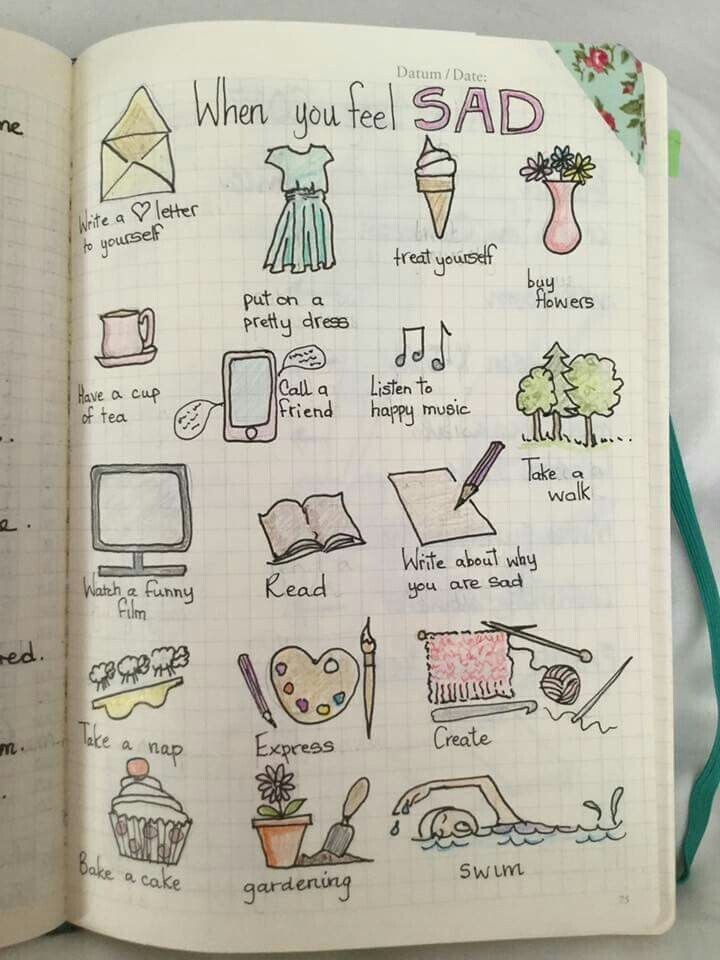 Datum / Date:
When you feel SAD
Write a ♡ letter
to yourself
put on a
pretty dress
treat yourself
buy
flowers
Have a cup
of tea
Call a
friend
Listen to
happy music
Take a
walk
Watch a funny
film
Read
Write about why
you are sad
Take a nap
Express
Create
Bake a cake
gardening
swim
75